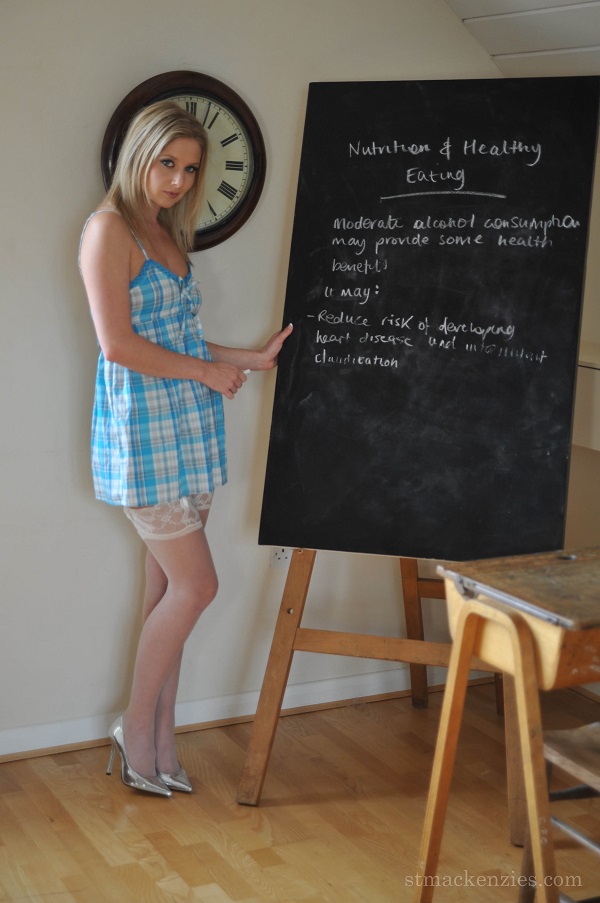 Nutrition & Healthy
Eating
Moderate alcohol consumption
may provide some health
benefits
it may:
- Reduce risk of developing
heart disease and intermittent
claudication
stmackenzies.com